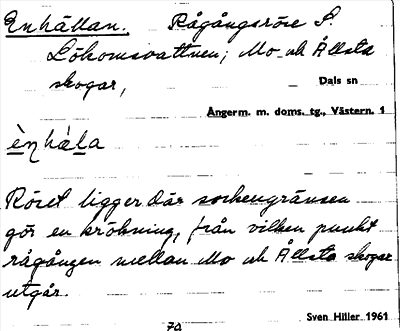 Enhällan. Rågångsröse S.
Lökomsvattnen; Mo och Ållsta
skogar,
Dals sn
Ångerm. m. doms. tg., Västern. 1
ènhæla
Röset ligger där sockengränsen
gör en krökning, från vilken punkt
rågången mellan Mo och Ållsta skogar
utgår.
Sven Hiller 1961
70